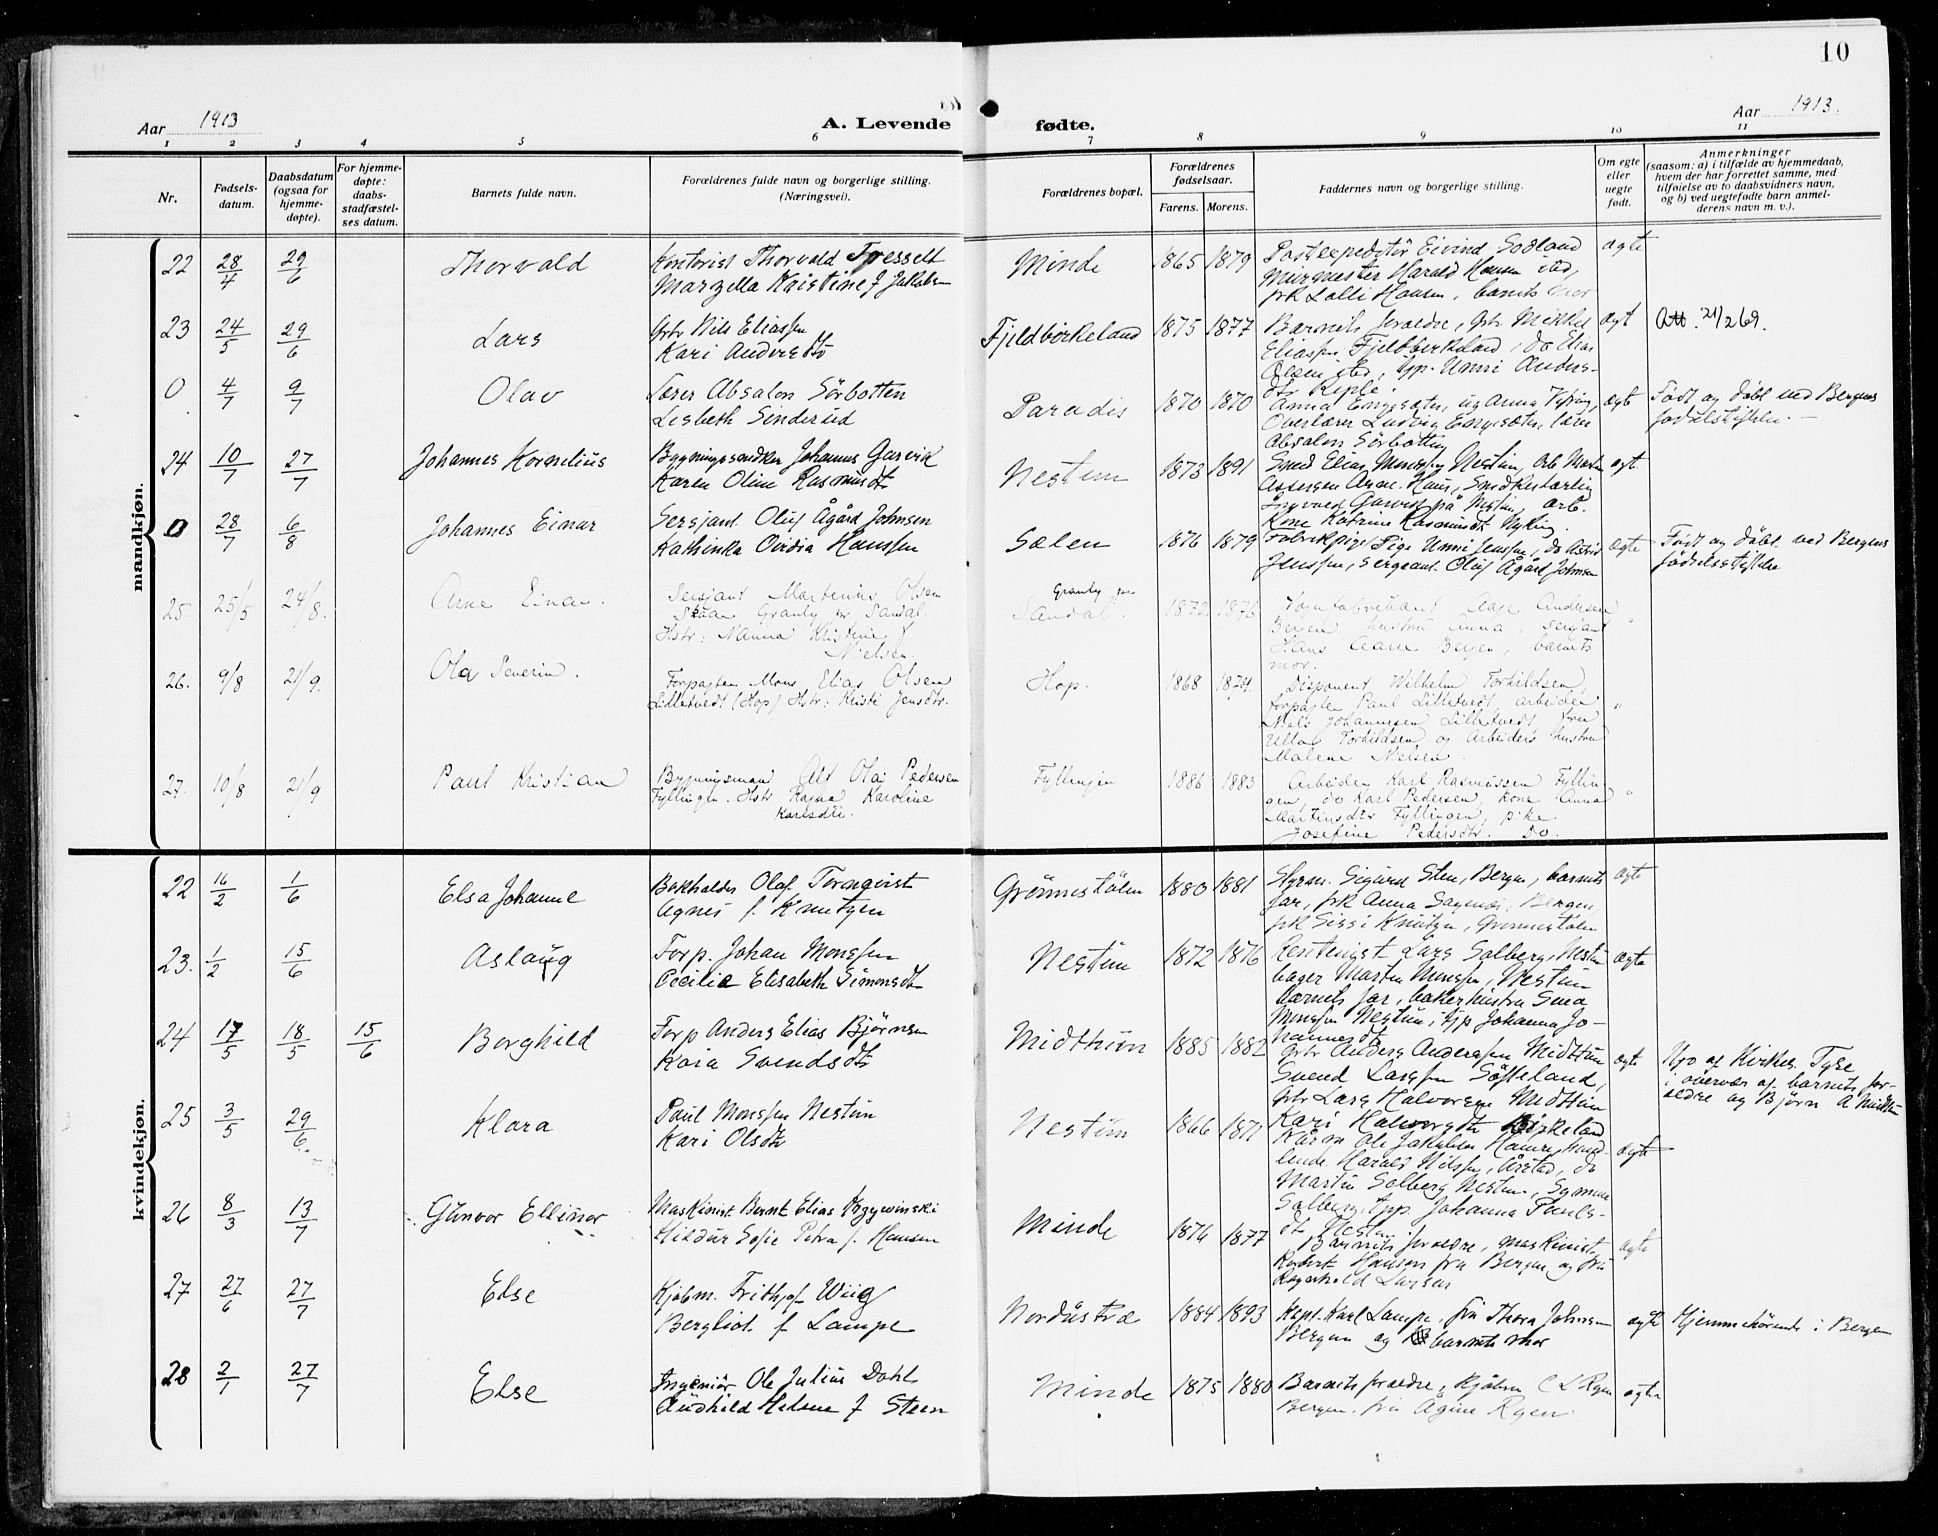 10
Aar 1913
A. Levende
fødte.
Aar 1913.
1 2 3 4 5 6 7 8 9 10 11
Nr.
Fødsels-
datum.
Daabsdatum
(ogsaa for
hjemme-
døpte).
For hjemme-
døpte:
daabs-
stadfæstel-
ses datum.
Barnets fulde navn.
Forældrenes fulde navn og borgerlige stilling.
(Næringsvei).
Forældrenes bopæl.
Forældrenes
fødselsaar.
Farens. Morens.
Faddernes navn og borgerlige stilling.
Om egte
eller
uegte
født.
Anmerkninger
(saasom: a) i tilfælde av hjemmedaab,
hvem der har forrettet samme, med
tilføielse av to daabsvidners navn,
og b) ved uegtefødte barn anmel-
derens navn m. v.).
mandkjøn.
22 28/4 29/6 Thorvald
Kontorist Thorvald Tresselt
Margella Kristine f Jakobsen
Minde 1865 1879
Postexpeditør Eivind Sodland
Murmester Harald Hansen ibid,
frk Lolli Hansen, barnets mor
ægte
23 24/5 29/6 Lars
Gbr Nils Eliassen
Kari Andersdtr
Fjeldbirkeland 1875 1877
Barnets foreldre, gbr Mikkel
Eliassen Fjeldbirkeland, do Elias
Olsen ibid, tjp. Unni Anders-
dtr Riple.
ægt
Att. 21/2 69.
0 4/7 9/7 Olav
Lærer Absalon Sörbotten
Lisbeth Sinderud
Paradis 1870 1870
Anna Engesæter, ug Anna
Overlærer Ludvig Engesæter, lærer
Absalon Sörbotten
ægte
Født og døbt ved Bergens
fødselsstiftelse.
24 10/7 27/7 Johannes Kornelius
Bygningssnedker Johannes Garvik
Karen Oline Rasmusdtr
Nestun 1873 1891
Smed Elias Monssen Nestun, Arb Martin
Assersen Haus, Snedkerlærling
Garvik på Nestun, arb.
Kone Katrine Rasmusdtr
ægt.
0 28/7 6/8 Johannes Einar
Sersjant Oluf Ågård Johnsen
Kathinka Ovidia Hanssen
Sælen 1876 1879
Fabrikpige Unni Jenssen, do Astrid
Jenssen, Sergeant Oluf Ågård Johnsen
ægte
Født og døbt ved Bergens
fødselsstiftelse
25. 25/5 24/8. Arne Einar.
Sersjant Martinius Olsen
Skaar Granly pr Sandal.
Hstr: Nanna Kristine f
Nielsen.
Granly pr
Sandal. 1872 1876
Tomtefabrikant Aase Andersen
Bergen hustru Anna, Sersjant
Hans Aase Bergen, barnets
mor.
"
26. 9/8 21/9. Ola Severin.
Forpagter Mons Elias Olsen
Lilletvedt (Hop) Hstr: Kristi Jensdtr.
Hop. 1868 1874.
Disponent Wilhelm Torkildsen,
forpagter Paul Lilletvedt, arbeider
Nels Johannesen Lilletvedt, fru
Torkildsen og Arbeiders hustru
Malene Nielsen.
"
27. 10/8 21/9 Paul Kristian
Bygningsmand Alf Olai Pedersen
Fyllingen. Hstr Ragna Karoline
Karlsdtr.
Fyllingen 1886 1883
Arbeider Karl Rasmussen Fyllin-
gen, do Karl Pedersen, kone Anna
Martinsdtr Fyllingen, pike
Josefine Pedersdtr. Do.
"
kvindekjøn.
22 16/2 1/6 Elsa Johanne
Bokholder Olaf Tornqvist
Agnes f. Knutzen
Grönnestölen 1880 1881
Styrm. Sigurd Sten, Bergen, barnets
far, frk Anna Sagenes, Bergen,
frk Sissi Knutzen, Grönnestölen
ægte
23. 1/2 15/6 Aslaug
Forp. Johan Monssen
Cecilie Elisabeth Simonsdtr
Nestun 1872 1876
Lars Solberg, Nestun
bager Martin Monssen, Nestun
barnets far, bakerhustru
Monssen Nestun, tjp Johanna Jo-
hannesdtr
ægte
24 17/5 18/5 15/6 Borghild
Forp Anders Elias Bjørnsen
Kaia Svendsdtr
Midthun 1885 1882
Gbr Anders Andersen Midttun
Svend Larssen Söfteland,
Gbr Lars Halvorsen Midttun
Kari Halvorsdtr Birkeland
ægte
Hjd af Kirkes.
i overvær af barnets for-
ældre og Bjørn A Midttun
25 3/5 29/6 Klara
Paul Monssen Nestun
Kari Olsdtr
Nestun 1866 1871
Ole Jakobsen Hamre, hand-
lende Harald Nilssen, Årstad, do
Martin Solberg Nestun,
Solberg, tjp. Johanna Pauls-
dtr Nestun.
ægte
26 8/3 13/7 Gunvor Ellinor
Maskinist Bernt Elias Krzywinski
Hildur Sofie Petra f. Hansen
Minde 1874 1877
Barnets foreldre, maskinist
Robert Hansen fra Bergen og fru
Ragnhild Larsen
ægte
27 27/6 27/7 Else
Kjöbm. Frithjof Wiig
Bergliot f Lampe
Nordåstræ 1884 1893
Kapt. Karl Lampe, fru Thora Johnsen
Bergen og barnets mor
ægte
Hjemmehørende i Bergen
28 2/1 27/7 Else
Ingeniör Ole Julius Dahl
Audhild Helene f Steen
Minde 1875 1880
Barnets foreldre, kjöbm C L Rgen
Bergen. fru Agine Rgen
ægte